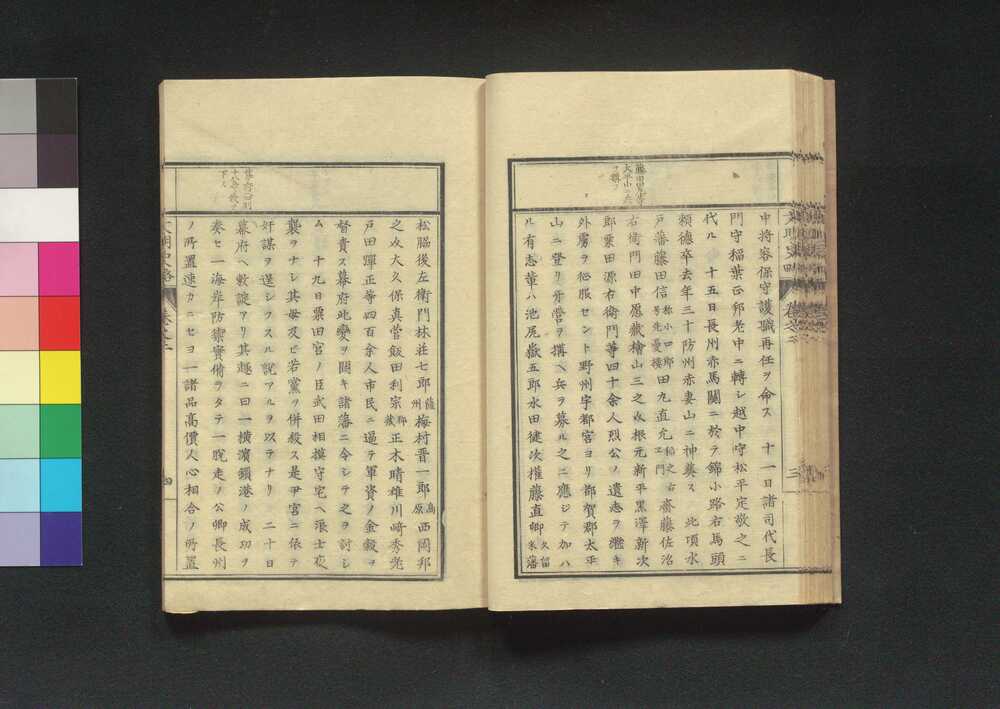 藤田信等
大平山ニ兵
ヲ擧ク
中将容保守護職再任ヲ命ス 十一日諸司代長
門守稲葉正邦老中ニ轉シ越中守松平定敬之ニ
代ル 十五日長州赤馬關ニ於テ錦小路右馬頭
頼徳卒去年三十防州赤妻山ニ神葬ス 此頃水
戸藩藤田信称小四郎号先憂樓田丸直允稲之右エ門齋藤佐治
右衛門田中愿藏檜山三之亟根元新平黒澤新次
郎栗田源右衛門等四十余人烈公ノ遺志ヲ繼キ
外虜ヲ征服セント野州宇都宮ヨリ都賀郡太平
山ニ登リ牙營ヲ搆ヘ兵ヲ募ル之ニ應ジテ加ハ
ル有志輩ハ池尻嶽五郎水田健次權藤直卿久留米藩
三
松脇後左衛門林荘七郎薩州梅村晋一郎島原西岡邦
之亟大久保真菅飯田利宗郡藏正木晴雄川﨑秀光
戸田彈正等四百余人市民ニ逼テ軍資ノ金穀ヲ
督責ス幕府此變ヲ聞キ諸藩ニ令シテ之ヲ討シ
ム 十九日粟田宮ノ臣武田相摸守宅ヘ浪士夜
襲ヲナシ其母及ビ若黨ヲ併殺ス是尹宮ニ依テ
奸謀ヲ逞シクスル説アルヲ以テナリ 二十日
幕府ヘ敕諚アリ其趣ニ曰一擴濱鎖港ノ成功ヲ
奏セ一海岸防禦實備ヲタテ一脱走ノ公卿長州
ノ所置速カニセヨ一諸品高價人心相合ノ所置
四